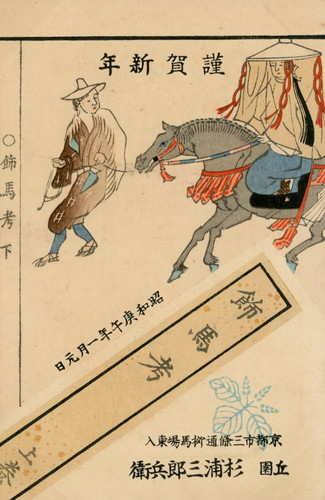 謹賀新年
○飾馬考 下
昭和庚午年一月元日
飾馬考
上巻
京都市三條通柳馬場東入
丘園 杉浦三郎兵衛